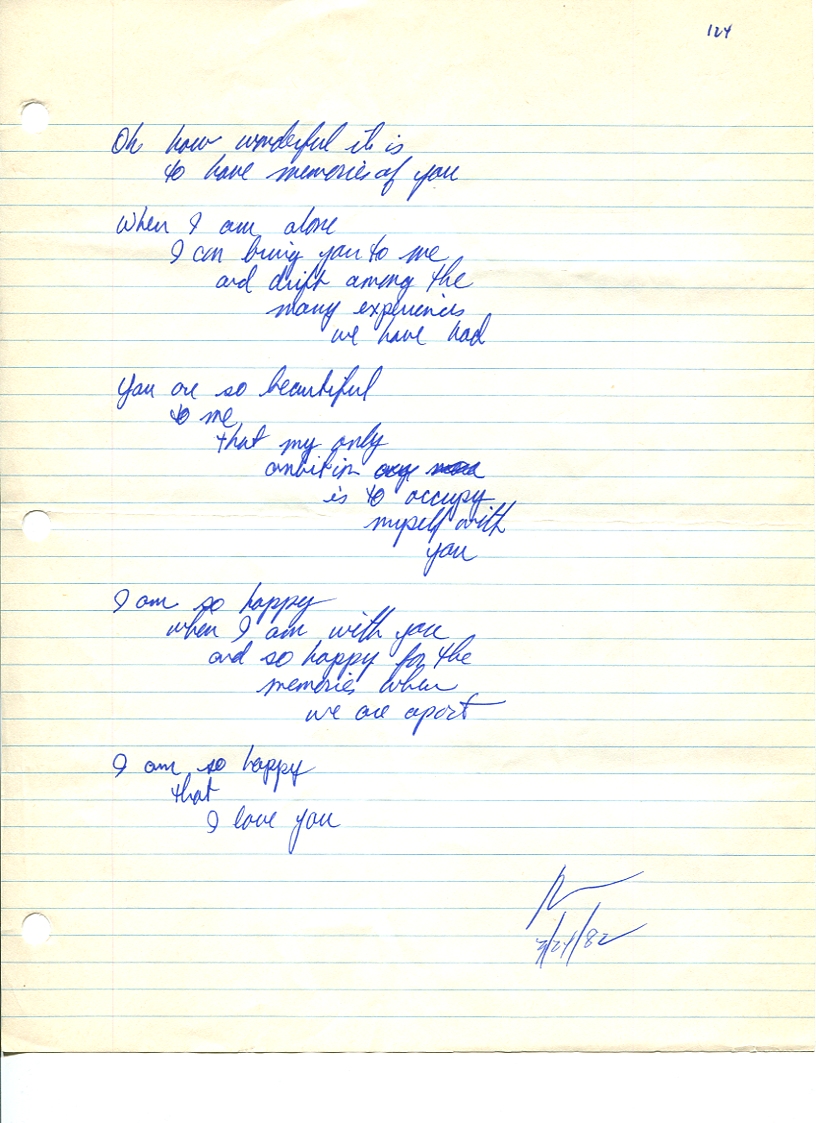 124
Oh how wonderful it is
to have memories of you
When I am alone
I can bring you to me
and drift among the
many experiences
we have had
You are so beautiful
to me
that my only
ambition
is to occupy
myself with
you
I am so happy
when I am with you
and so happy for the
memories when
we are apart
I am so happy
that
I love you